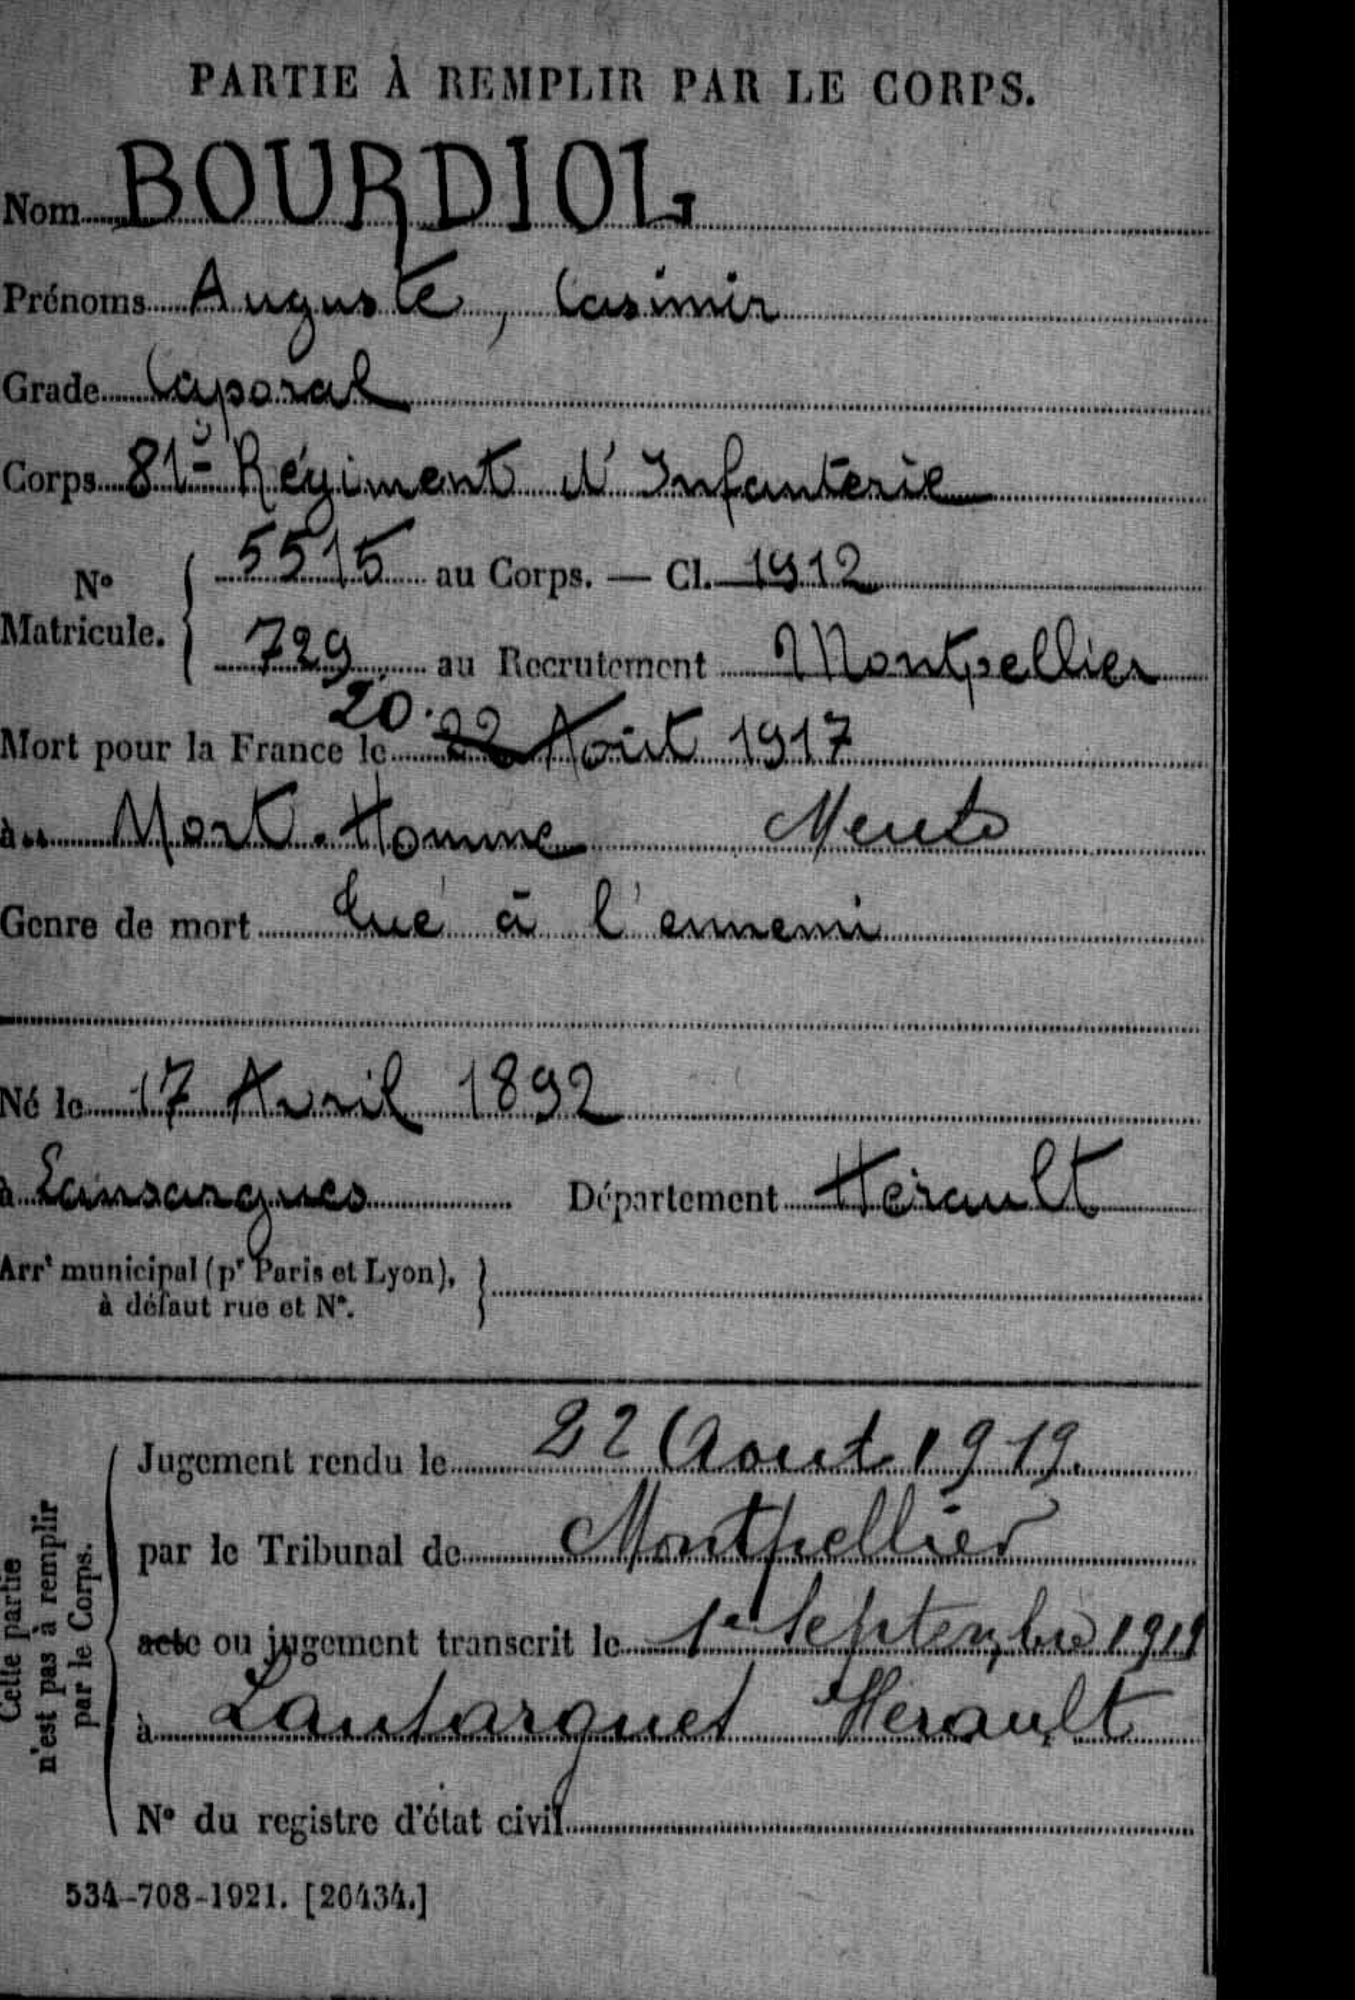 PARTIE À REMPLIR PAR LE CORPS.
Nom BOURDIOL
Prénoms Auguste, Casimir
Grade Caporal
Corps 81e Régiment d'Infanterie
No Matricule. { 5515 au Corps. — Cl. 1912
729 au Recrutement Montpellier
20.
Mort pour la France le 22 Août 1917
à Mort-Homme Meuse
Genre de mort Tué à l'ennemi
Né le 17 Avril 1892
à Lansargues Département Hérault
Arrt municipal (pr Paris et Lyon), à défaut rue et No. }
Cette partie n'est pas à remplir par le Corps.
Jugement rendu le 22 Aout 1919.
par le Tribunal de Montpellier
acte ou jugement transcrit le 1er Septembre 1919
à Lansargues Hérault
No du registre d'état civil
534-708-1921. [26434.]